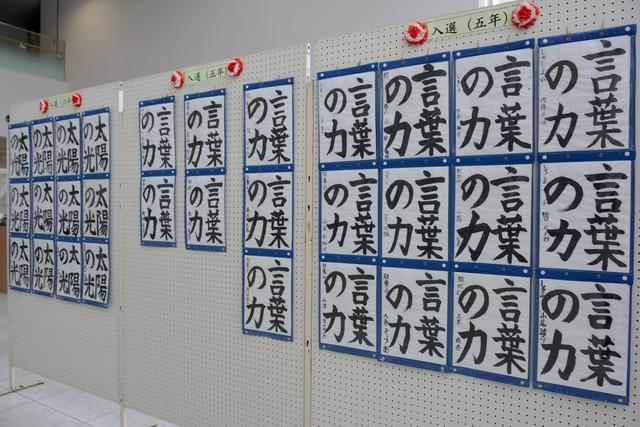 入選（六年）
太陽
の光
太陽
の光
太陽
の光
太陽
の光
太陽
の光
太陽
の光
太陽
の光
太陽
の光
太陽
の光
太陽
の光
太陽
の光
太陽
の光
入選（五年）
言葉
の力
言葉
の力
言葉
の力
言葉
の力
言葉
の力
言葉
の力
言葉
の力
入選（五年）
言葉
の力
言葉
の力
言葉
の力
言葉
の力
言葉
の力
言葉
の力
言葉
の力
言葉
の力
言葉
の力
言葉
の力
言葉
の力
言葉
の力